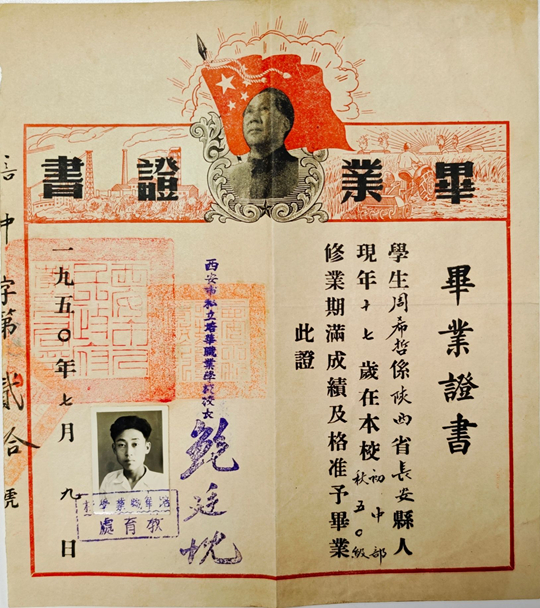 畢業證書
畢業證書
學生周希哲係陝西省長安縣人
現年十七歲在本校初中部秋五〇級
修業期滿成績及格准予畢業
此證
西安市私立培華職業學校校長
一九五〇年七月九日
中字第貳拾號
培華職業學校
教育處